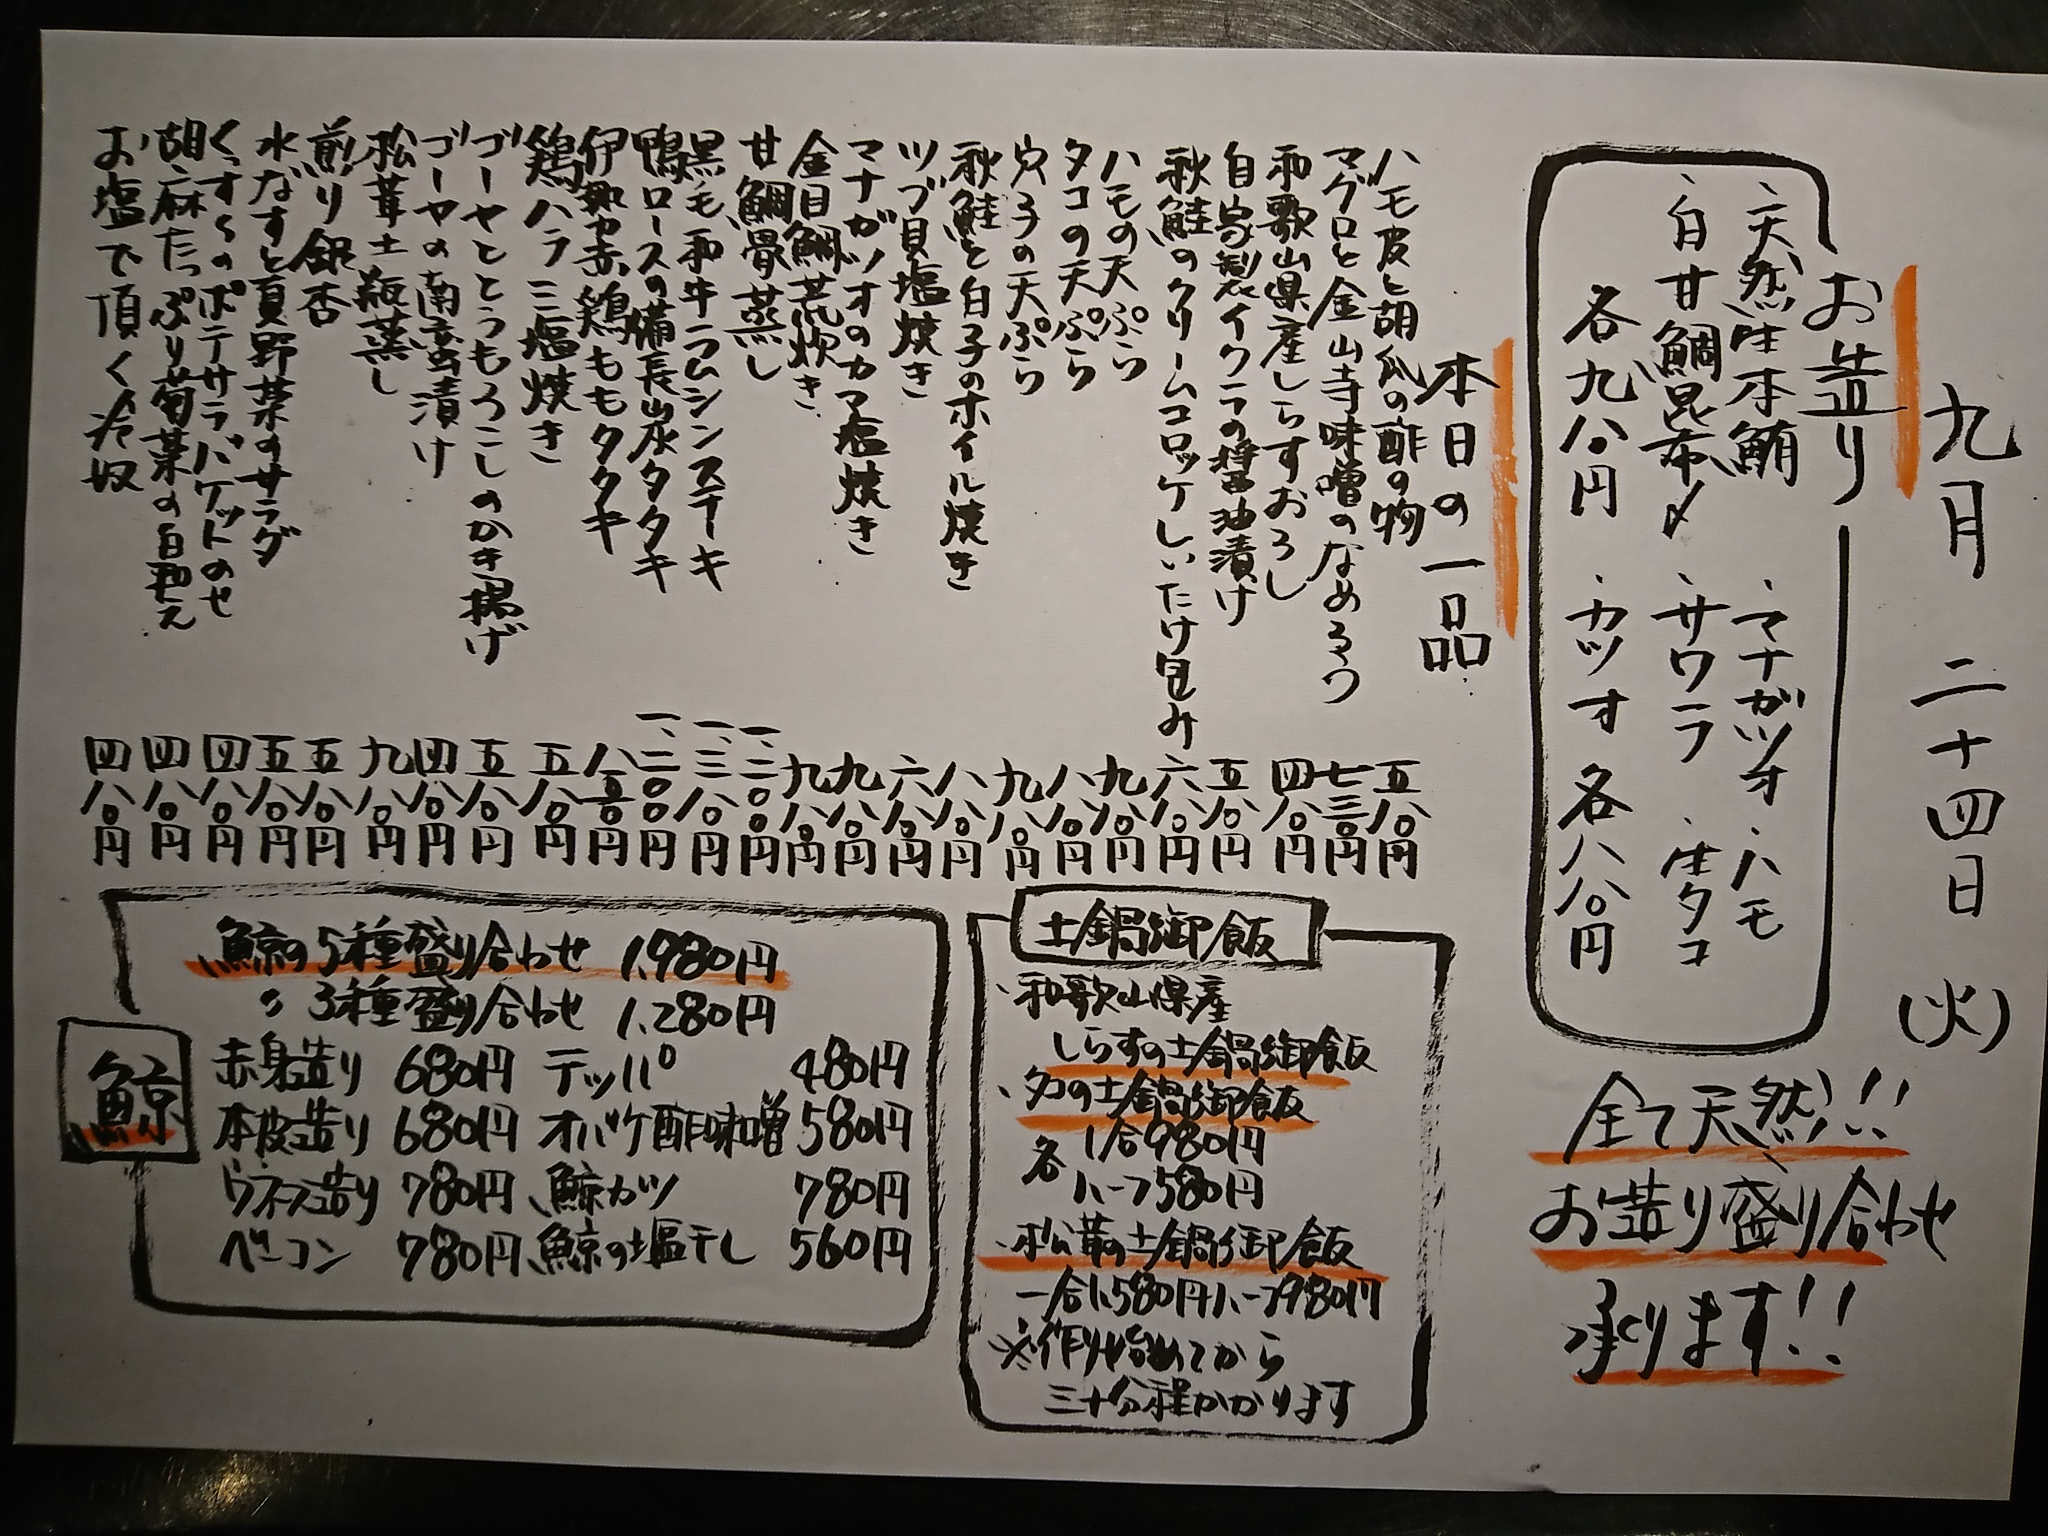 九月 二十四日 (火)
お造り
、天然生本鮪
、白甘鯛昆布〆
各九八〇円
、マナガツオ、ハモ
、サワラ 、生タコ
、カツオ 各八八〇円
全て天然!!
お造り盛り合わせ
承ります!!
本日の一品
ハモ皮と胡瓜の酢の物 五八〇円
マグロと金山寺味噌のなめろう 七三〇円
和歌山県産しらすおろし 四八〇円
自家製イクラの醤油漬け 五八〇円
秋鮭のクリームコロッケしいたけ包み 六八〇円
ハモの天ぷら 九八〇円
タコの天ぷら 八八〇円
穴子の天ぷら 九八〇円
秋鮭と白子のホイル焼き 八八〇円
ツブ貝塩焼き 六八〇円
マナガツオのカマ塩焼き 九八〇円
金目鯛荒炊き 九八〇円
甘鯛骨蒸し 一、二〇〇円
黒毛和牛ラムシンステーキ 一、三八〇円
鴨ロースの備長炭タタキ 一、二〇〇円
伊勢赤鶏ももタタキ 八五〇円
鶏ハラミ塩焼き 五八〇円
ゴーヤととうもろこしのかき揚げ 五八〇円
ゴーヤの南蛮漬け 四八〇円
松茸土瓶蒸し 九八〇円
煎り銀杏 五八〇円
水なすと夏野菜のサラダ 五八〇円
くずくずのポテサラバケットのせ 四八〇円
胡麻たっぷり菊菜の白和え 四八〇円
お塩で頂く冷奴 四八〇円
土鍋御飯
、和歌山県産
しらすの土鍋御飯
、タコの土鍋御飯
各 1合980円
ハーフ580円
、松茸の土鍋御飯
一合1,580円ハーフ980円
※作り始めてから
三十分程かかります
鯨
鯨の5種盛り合わせ 1,980円
〃 3種盛り合わせ 1,280円
赤身造り 680円 テッパ 480円
本皮造り 680円 オバケ酢味噌 580円
ウネス造り 780円 鯨カツ 780円
ベーコン 780円 鯨の塩干し 560円